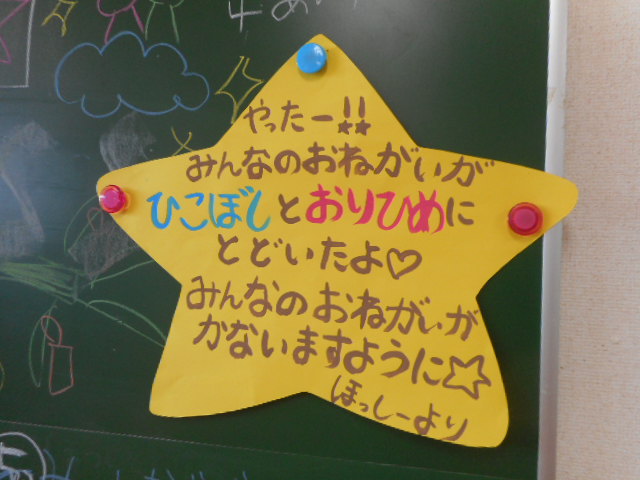 やったー!!
みんなのおねがいが
ひこぼしとおりひめに
とどいたよ♡
みんなのおねがいが
かないますように☆
ほっしーより